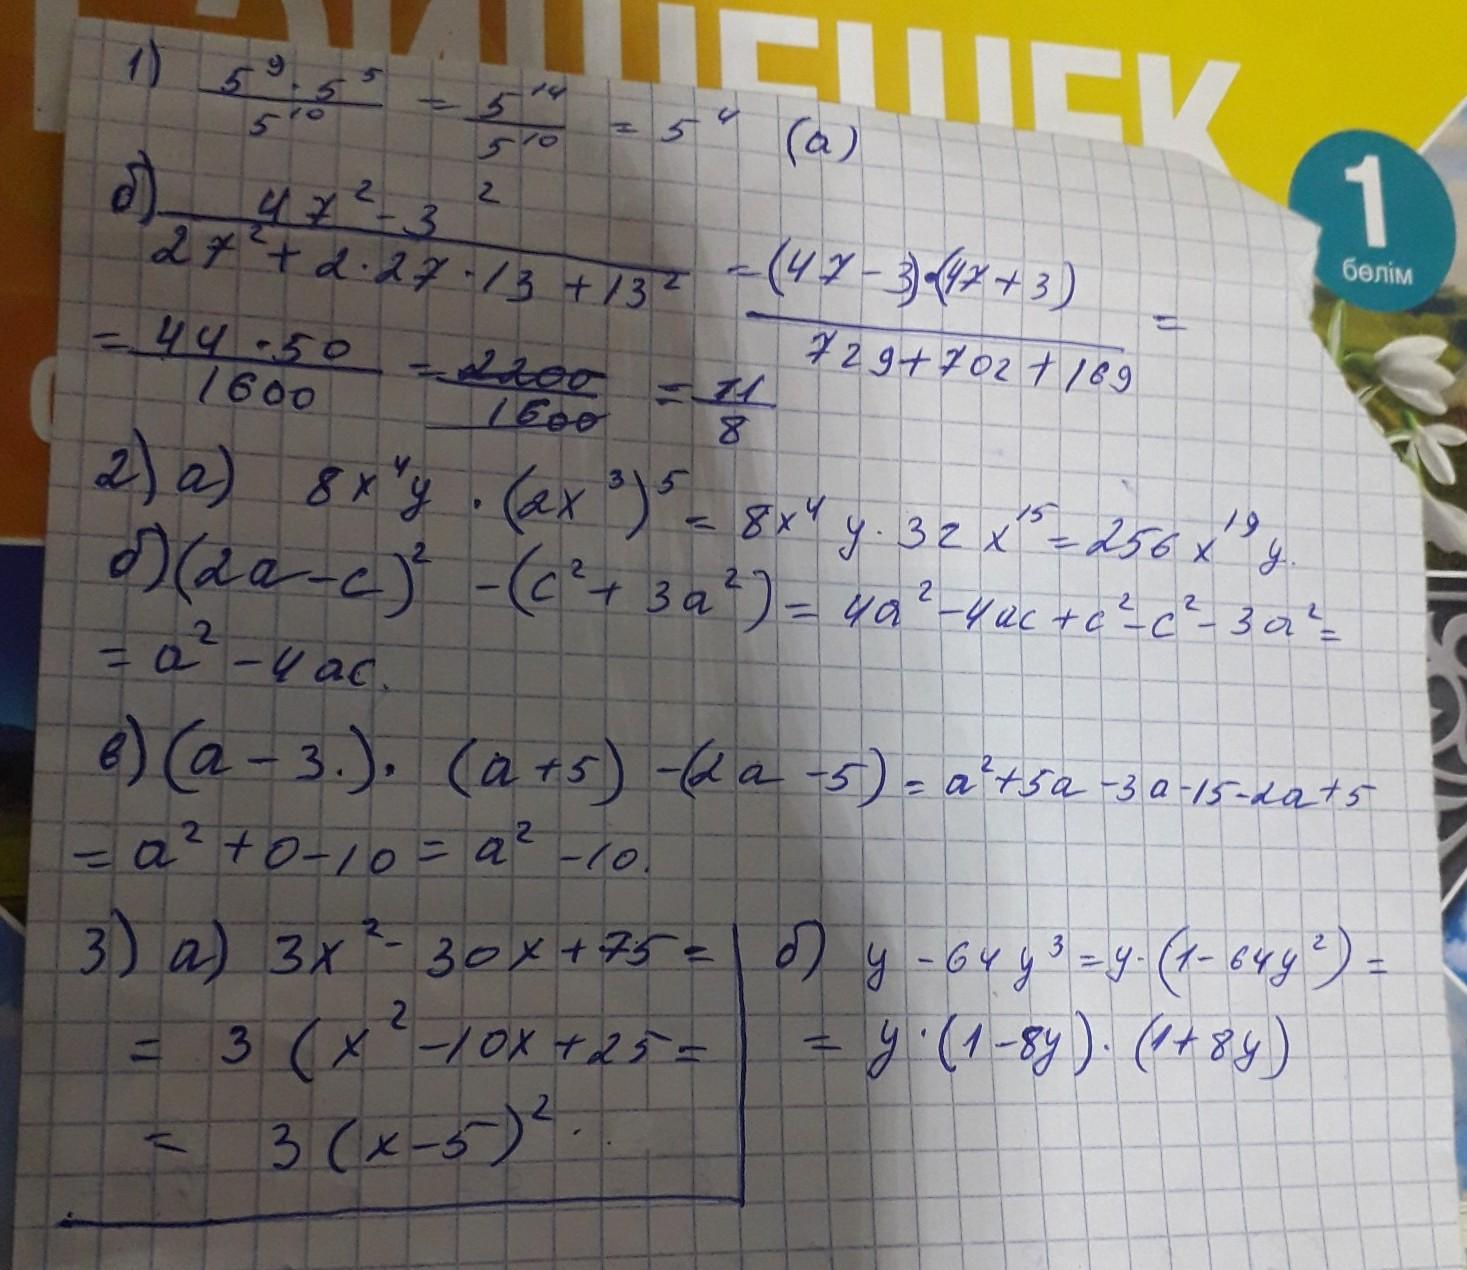 АЙШЕШЕК
1
бөлім
1) 5⁹·5⁵/5¹⁰ = 5¹⁴/5¹⁰ = 5⁴ (а)
б) 47²-3²/27²+2·27·13+13² = (47-3)·(47+3)/729+702+169 =
= 44·50/1600 = 2200/1600 = 11/8
2) а) 8x⁴y·(2x³)⁵ = 8x⁴y·32x¹⁵ = 256x¹⁹y.
б) (2a-c)² -(c²+3a²) = 4a²-4ac+c²-c²-3a²=
= a²-4ac.
в) (a-3.)·(a+5)-(2a-5) = a²+5a-3a-15-2a+5
= a²+0-10 = a²-10.
3) а) 3x²-30x+75 =
= 3(x²-10x+25 =
= 3(x-5)².
б) y-64y³ = y·(1-64y²) =
= y·(1-8y)·(1+8y)